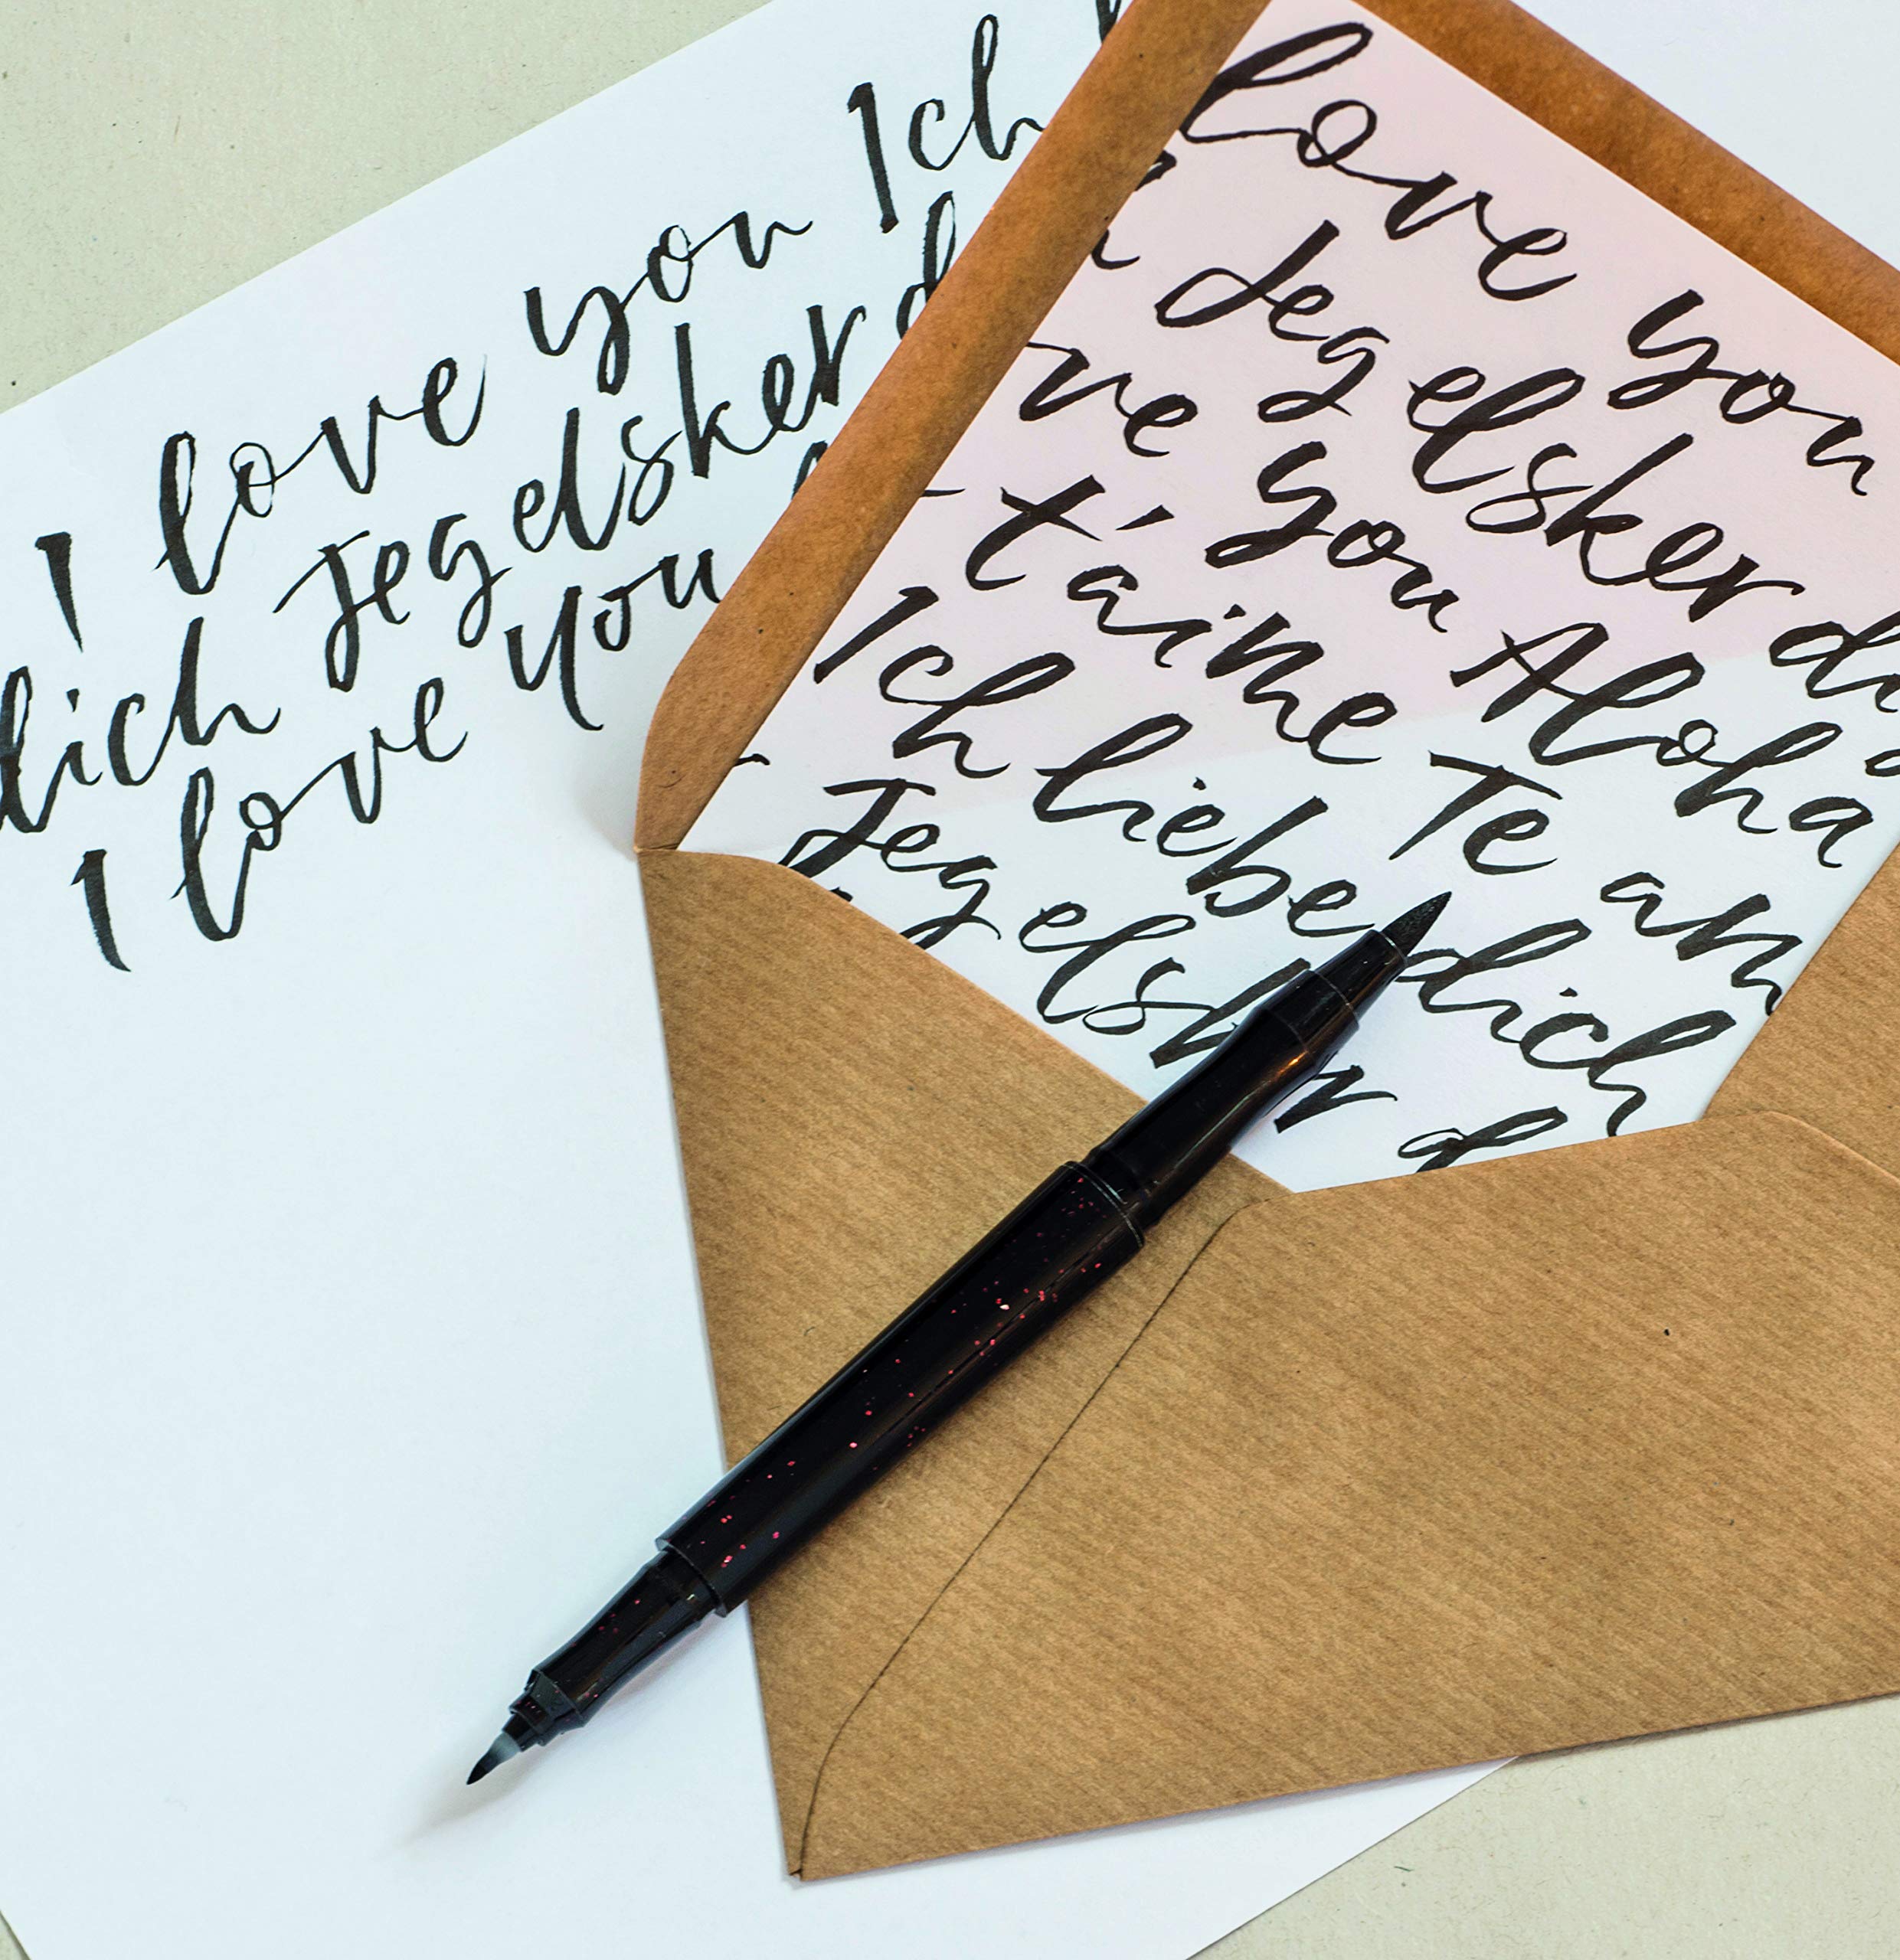 I love you Ich
dich Jeg elsker d
I love you
love you
Jeg elsker d
ve you Aloha
t'aime Te am
Ich liebe dich
Jeg elsker d